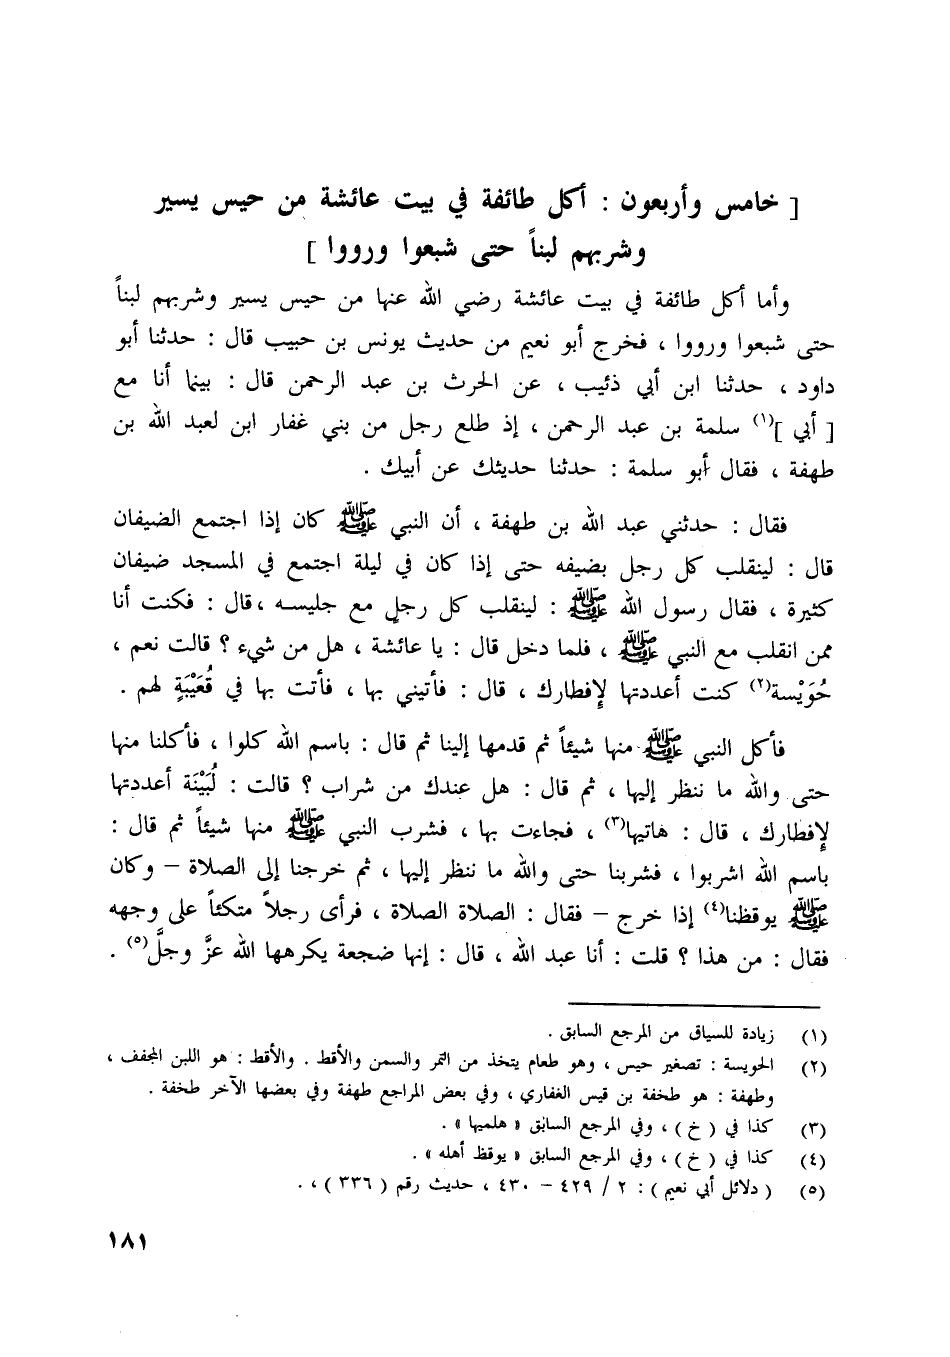 [ خامس وأربعون : أكل طائفة في بيت عائشة من حيس يسير
وشربهم لبناً حتى شبعوا ورووا ]
وأما أكل طائفة في بيت عائشة رضي الله عنها من حيس يسير وشربهم لبناً
حتى شبعوا ورووا ، فخرج أبو نعيم من حديث يونس بن حبيب قال : حدثنا أبو
داود ، حدثنا ابن أبي ذئيب ، عن الحرث بن عبد الرحمن قال : بينما أنا مع
[ أبي ](١) سلمة بن عبد الرحمن ، إذ طلع رجل من بني غفار ابن لعبد الله بن
طهفة ، فقال أبو سلمة : حدثنا حديثك عن أبيك .
فقال : حدثني عبد الله بن طهفة ، أن النبي ﷺ كان إذا اجتمع الضيفان
قال : لينقلب كل رجل بضيفه حتى إذا كان في ليلة اجتمع في المسجد ضيفان
كثيرة ، فقال رسول الله ﷺ : لينقلب كل رجلٍ مع جليسه ،قال : فكنت أنا
ممن انقلب مع النبي ﷺ ، فلما دخل قال : يا عائشة ، هل من شيء ؟ قالت نعم ،
حُوَيْسة(٢) كنت أعددتها لإفطارك ، قال : فأتيني بها ، فأتت بها في قُعَيْبَةٍ لهم .
فأكل النبي ﷺ منها شيئاً ثم قدمها إلينا ثم قال : باسم الله كلوا ، فأكلنا منها
حتى والله ما ننظر إليها ، ثم قال : هل عندك من شراب ؟ قالت : لُبَيْنَة أعددتها
لإفطارك ، قال : هاتيها(٣) ، فجاءت بها ، فشرب النبي ﷺ منها شيئاً ثم قال :
باسم الله اشربوا ، فشربنا حتى والله ما ننظر إليها ، ثم خرجنا إلى الصلاة – وكان
ﷺ يوقظنا(٤) إذا خرج – فقال : الصلاة الصلاة ، فرأى رجلاً متكئاً على وجهه
فقال : من هذا ؟ قلت : أنا عبد الله ، قال : إنها ضجعة يكرهها الله عزَّ وجلَّ(٥) .
(١) زيادة للسياق من المرجع السابق .
(٢) الحويسة : تصغير حيس ، وهو طعام يتخذ من التمر والسمن والأقط . والأقط : هو اللبن المجفف ،
وطهفة : هو طخفة بن قيس الغفاري ، وفي بعض المراجع طهفة وفي بعضها الآخر طخفة .
(٣) كذا في ( خ ) ، وفي المرجع السابق « هلميها » .
(٤) كذا في ( خ ) ، وفي المرجع السابق « يوقظ أهله » .
(٥) ( دلائل أبي نعيم ) : ٢ / ٤٢٩ – ٤٣٠ ، حديث رقم ( ٣٣٦ ) ، .
١٨١